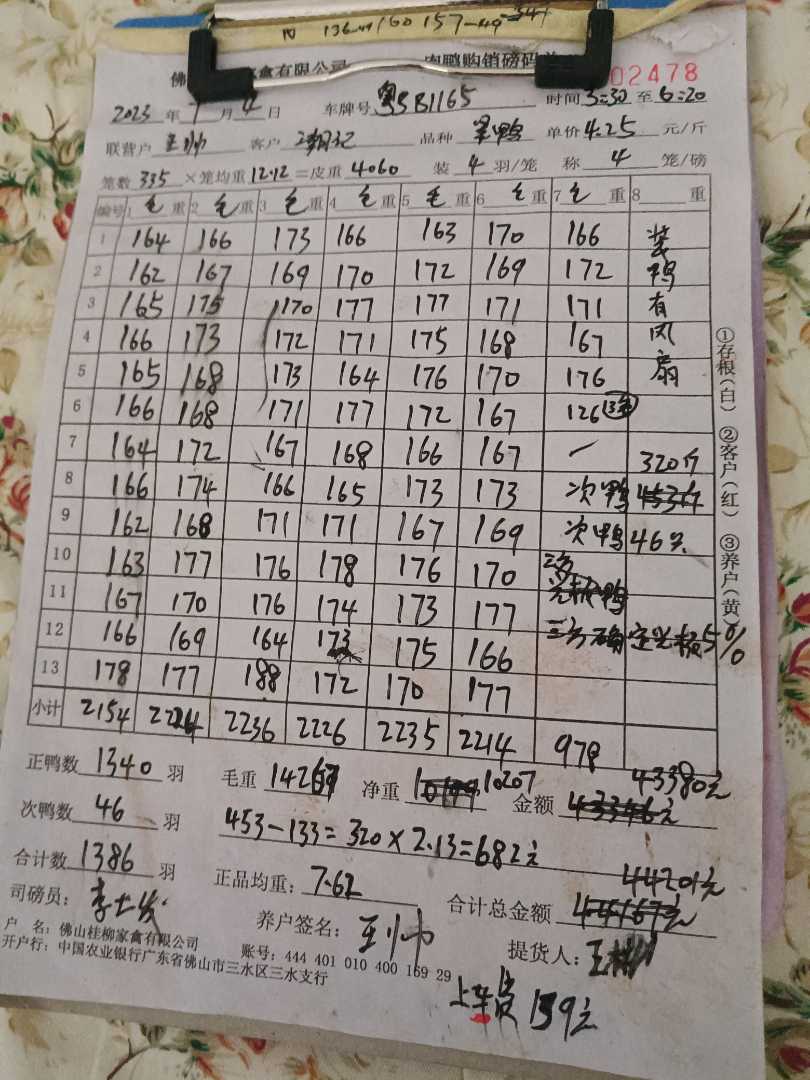 136 160 157-49=341
佛 家禽有限公司 肉鸭购销磅码单 02478
2023年7月4日 车牌号 粤SB1165 时间 3:30 至 6:20
联营户 王帅 客户 品种 单价 4.25 元/斤
笼数 335 ×笼均重 12.12 =皮重 4060 装 4 羽/笼 称 4 笼/磅
编号 1 毛 重 2 毛 重 3 毛 重 4 毛 重 5 毛 重 6 毛 重 7 毛 重 8 重
1 164 166 173 166 163 170 166 装
2 162 167 169 170 172 169 172 鸭
3 165 175 170 177 177 171 171 有
4 166 173 172 171 175 168 167 风
5 165 168 173 164 176 170 176 扇
6 166 168 171 177 172 167 126
7 164 172 167 168 166 167 320斤
8 166 174 166 165 173 173 次鸭 453斤
9 162 168 171 171 167 169 次鸭 46只
10 163 177 176 178 176 170
11 167 170 176 174 173 177
12 166 169 164 173 175 166 三方确定 5%
13 178 177 188 172 170 177
小计 2154 2224 2236 2226 2235 2214 978
43380元
正鸭数 1340 羽 毛重 14267 净重 10207 金额 43346元
次鸭数 46 羽 453-133=320×2.13=682元
44201元
合计数 1386 羽 正品均重: 7.62 合计总金额 44167元
司磅员: 养户签名: 王帅 提货人:
户 名: 佛山桂柳家禽有限公司 账号: 444 401 010 400 169 29
开户行: 中国农业银行广东省佛山市三水区三水支行
上车费 159元
①存根(白) ②客户(红) ③养户(黄)